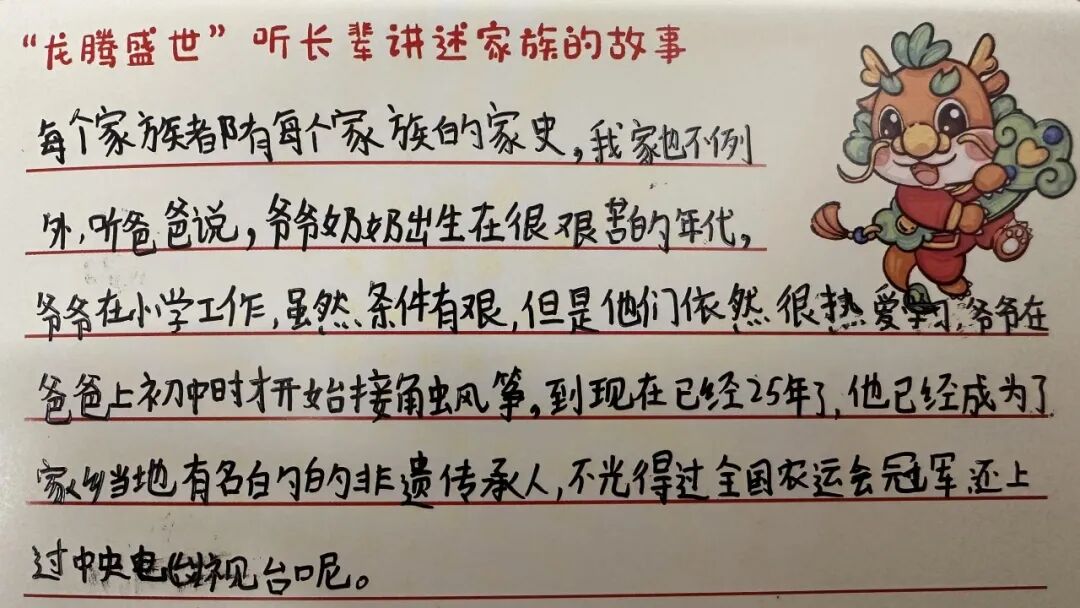 “龙腾盛世”听长辈讲述家族的故事
每个家族都有每个家族的家史，我家也不例
外，听爸爸说，爷爷奶奶出生在很艰苦的年代，
爷爷在小学工作，虽然条件有艰，但是他们依然很热爱学习，爷爷在
爸爸上初中时才开始接触风筝，到现在已经25年了，他已经成为了
家乡当地有名的的非遗传承人，不光得过全国农运会冠军，还上
过中央电视台呢。